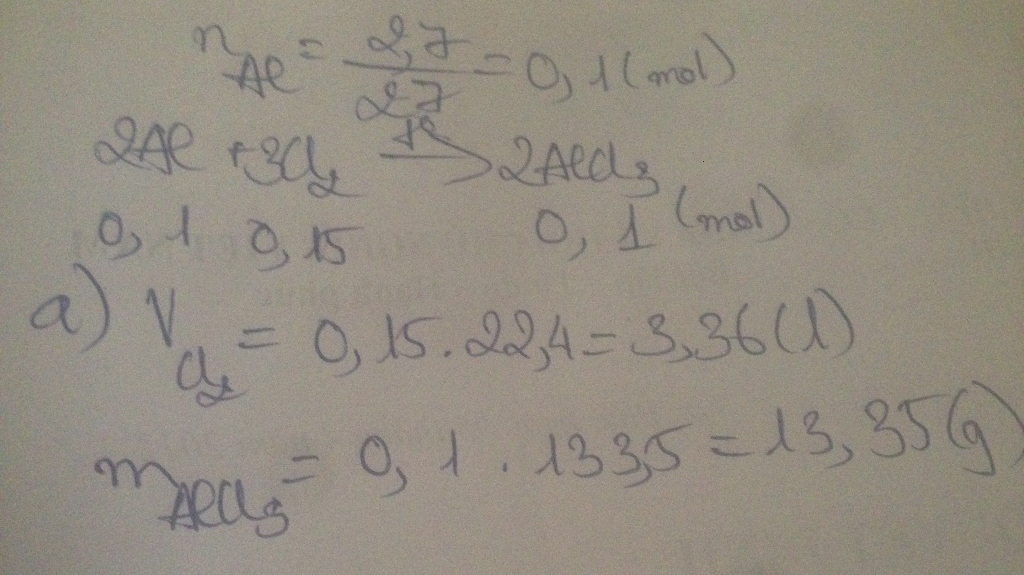 n Al = 2,7 / 27 = 0,1 (mol)
2Al + 3Cl2 t° → 2AlCl3
0,1 0,15 0,1 (mol)
a) V Cl2 = 0,15 . 22,4 = 3,36 (l)
m AlCl3 = 0,1 . 133,5 = 13,35 (g)